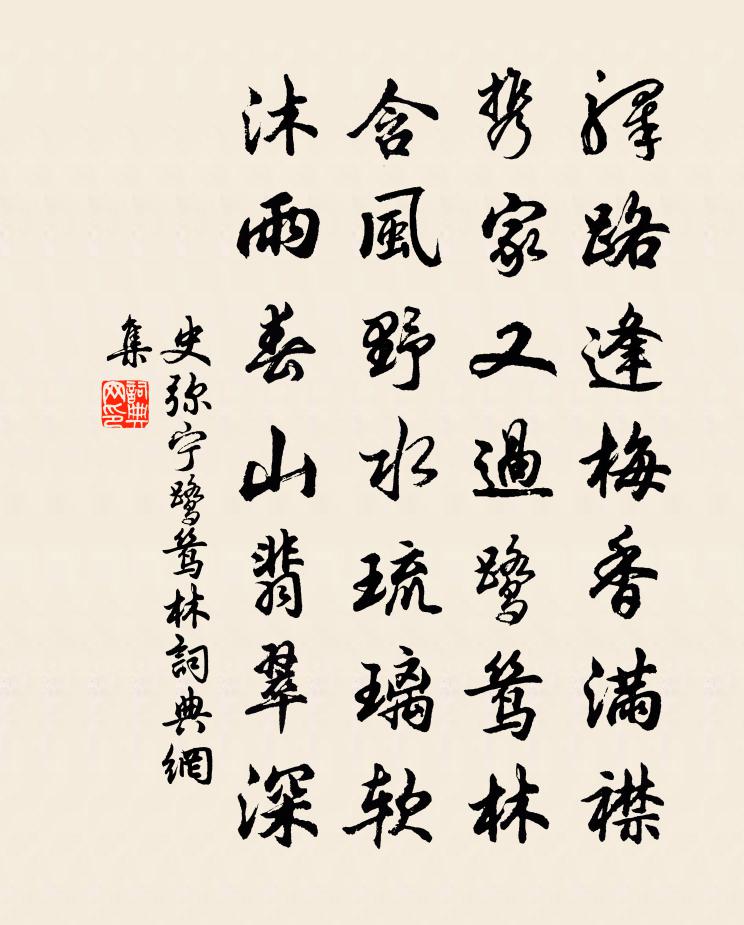 驛路逢梅香滿襟
携家又過鷺鴜林
含風野水琉璃軟
沐雨春山翡翠深
史弥宁鷺鴜林詞典網
集
詞典
网印